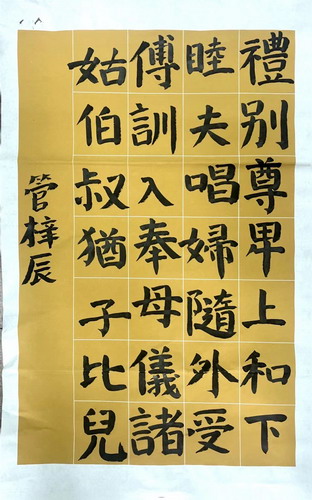 禮別尊卑上和下
睦夫唱婦隨外受
傅訓入奉母儀諸
姑伯叔猶子比兒
管梓辰